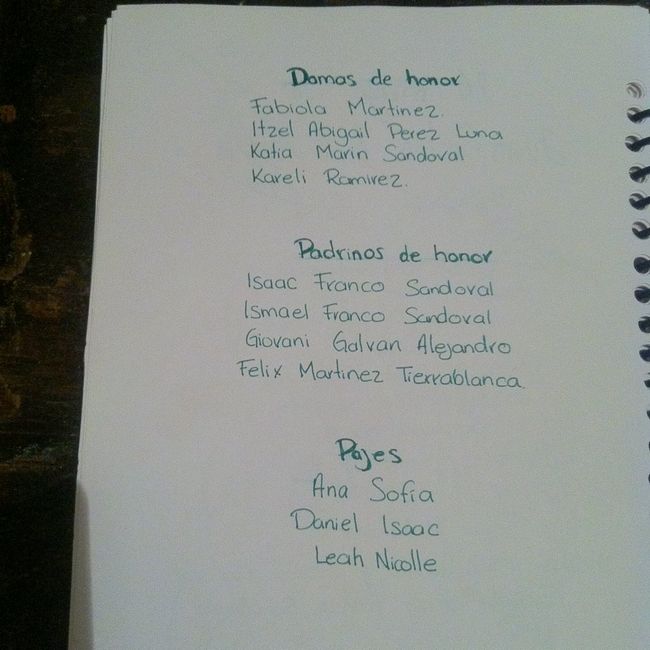 Damas de honor
Fabiola Martinez.
Itzel Abigail Perez Luna
Katia Marin Sandoval
Kareli Ramirez.
Padrinos de honor
Isaac Franco Sandoval
Ismael Franco Sandoval
Giovani Galvan Alejandro
Felix Martinez Tierrablanca.
Pajes
Ana Sofía
Daniel Isaac
Leah Nicolle